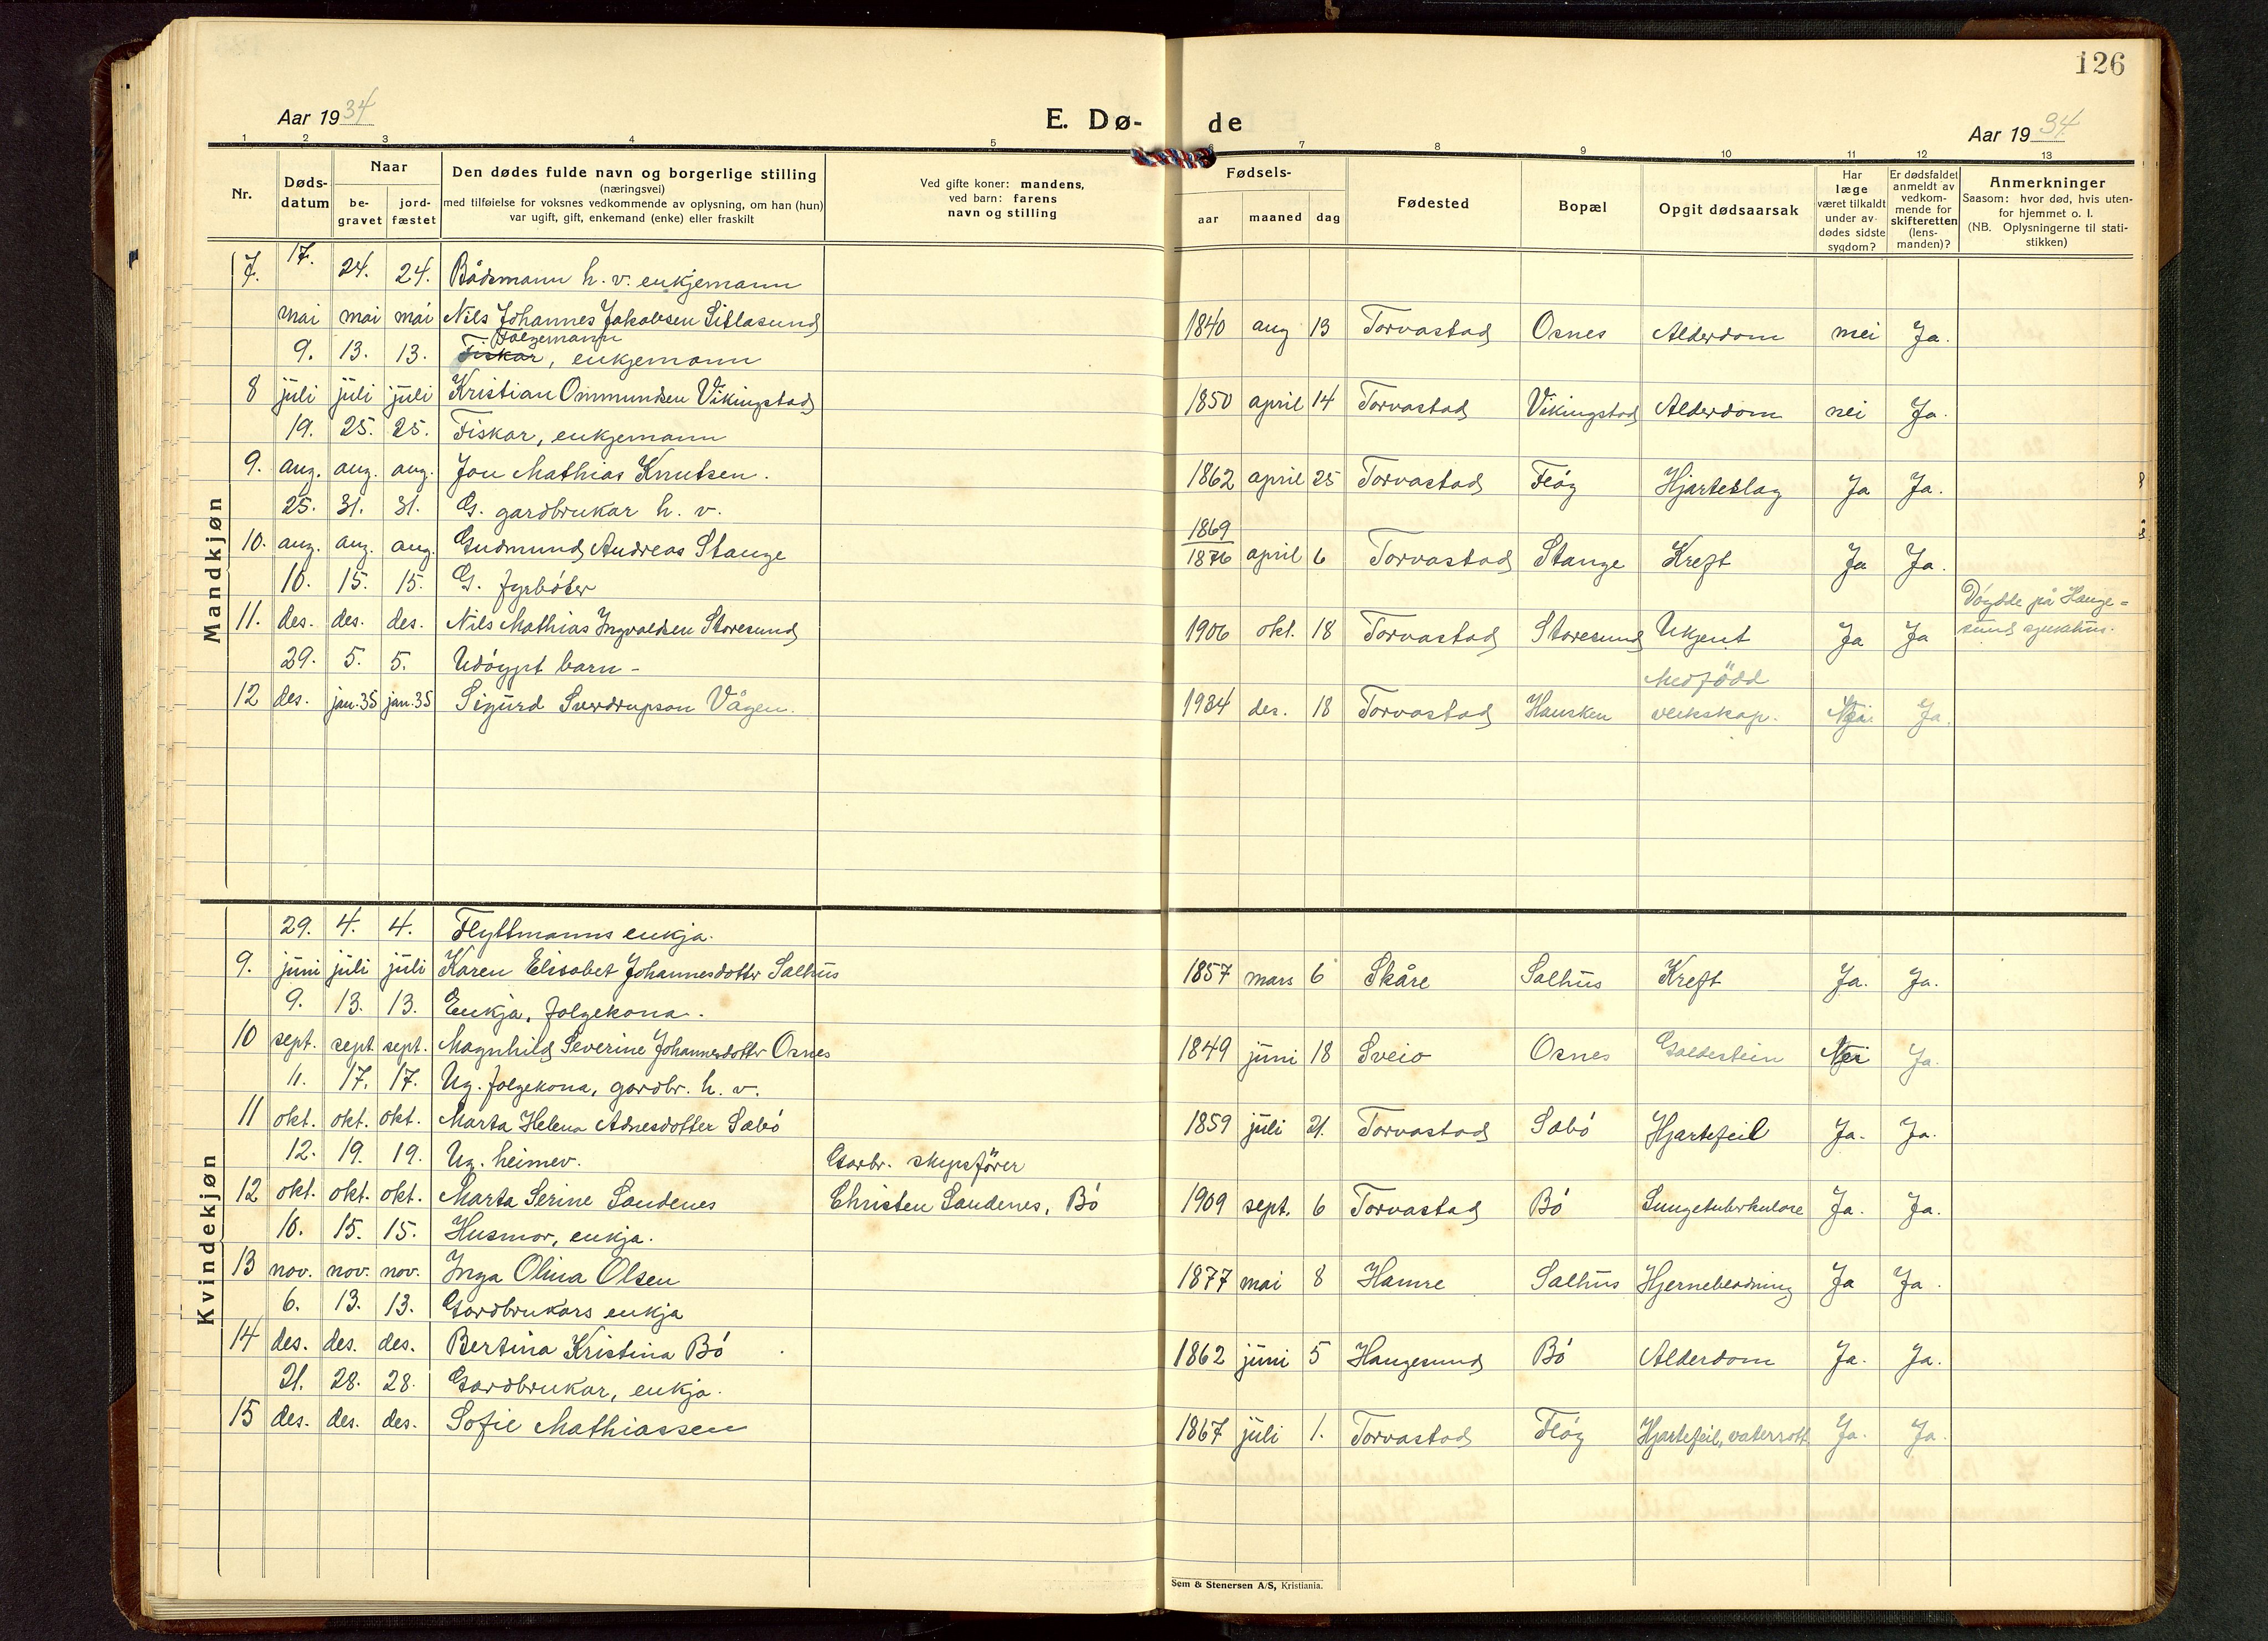 126
Aar 1934
E. Dø-
de
Aar 1934
1 2 3 4 5 6 7 8 9 10 11 12 13
Nr.
Døds-
datum
Naar
be-
gravet
jord-
fæstet
Den dødes fulde navn og borgerlige stilling
(næringsvei)
med tilføielse for voksnes vedkommende av oplysning, om han (hun)
var ugift, gift, enkemand (enke) eller fraskilt
Ved gifte koner: mandens,
ved barn: farens
navn og stilling
Fødsels-
aar maaned dag
Fødested
Bopæl
Opgit dødsaarsak
Har
læge
været tilkaldt
under av-
dødes sidste
sygdom?
Er dødsfaldet
anmeldt av
vedkom-
mende for
skifteretten
(lens-
manden)?
Anmerkninger
Saasom: hvor død, hvis uten-
for hjemmet o. l.
(NB. Oplysningerne til stati-
stikken)
Mandkjøn
7. 17. 24. 24. Bådsmann h. v. enkjemann
mai mai mai Nils Johannes Jakobsen Litlasund 1840 aug 13 Torvastad Osnes Alderdom nei Ja.
Folgemann
9. 13. 13. Fiskar, enkjemann
8 juli juli juli Kristian Ommundsen Vikingstad 1850 april 14 Torvastad Vikingstad Alderdom nei Ja.
19. 25. 25. Fiskar, enkjemann
9. aug. aug. aug. Jon Mathias Knutsen. 1862 april 25 Torvastad Fløg Hjarteslag Ja Ja.
25. 31. 31. G. gardbrukar h. v.
1869
10. aug. aug. aug. Gudmund Andreas Stange 1876 april 6 Torvastad Stange Kreft Ja Ja.
10. 15. 15. G. fyrbøter
11. des. des. des. Nils Mathias Ingvaldsen Storesund 1906 okt. 18 Torvastad Storesund Ukjent Ja Ja Døydde på Hauge=
sund sjukehus.
29. 5. 5. Udøypt barn - Medfödd
12 des. jan. 35 jan. 35 Sigurd Sverdrupson Vågen. 1934 des. 18 Torvastad Hausken veikskap. Nei. Ja.
Kvindekjøn
29. 4. 4. Flyttmanns enkja.
9. juni juli juli Karen Elisabet Johannesdotter Salhus 1857 mars 6 Skåre Salhus Kreft Ja. Ja.
9. 13. 13. Enkja, folgekona.
10 sept. sept sept. Magnhild Severine Johannesdotter Osnes 1849 juni 18 Sveio Osnes Galdestein Nei Ja.
11. 17. 17. Ug. folgekona, gardbr. h. v.
11 okt. okt. okt. Marta Helena Adnesdotter Sæbø 1859 juli 21. Torvastad Sæbø Hjartefeil Ja. Ja.
12. 19. 19. Ug. heimev. Garbr. skipsfører
12 okt. okt. okt. Marta Serine Sandenes Christen Sandenes, Bø 1909 sept. 6 Torvastad Bø Lungetuberkulose Ja. Ja.
10. 15. 15. Husmor, enkja.
13 nov. nov. nov. Inga Olina Olsen 1877 mai 8 Hamre Salhus Hjernebledning Ja Ja.
6. 13. 13. Gardbrukars enkja
14 des. des. des. Bertina Kristina Bø 1862 juni 5 Haugesund Bø Alderdom Ja. Ja.
21. 28. 28. Gardbrukar, enkja.
15 des. des. des. Sofie Mathiassen 1867 juli 1. Torvastad Fløg Hjartefeil, vatersott Ja. Ja.
Sem & Stenersen A/S, Kristiania.